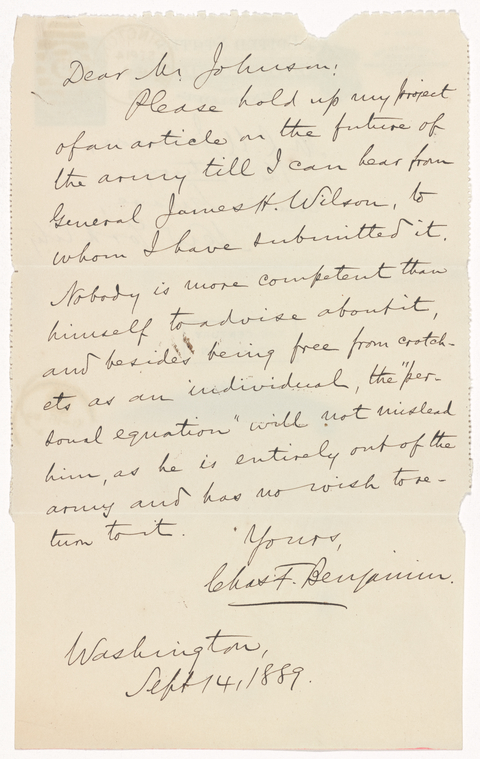 Dear Mr. Johnson:
Please hold up my project
of an article on the future of
the army till I can hear from
General James H. Wilson, to
whom I have submitted it.
Nobody is more competent than
himself to advise about it,
and besides being free from crotch-
ets as an individual, the "per-
sonal equation" will not mislead
him, as he is entirely out of the
army and has no wish to re-
turn to it.
Yours,
Chas. F. Benjamin.
Washington,
Sept 14, 1889.